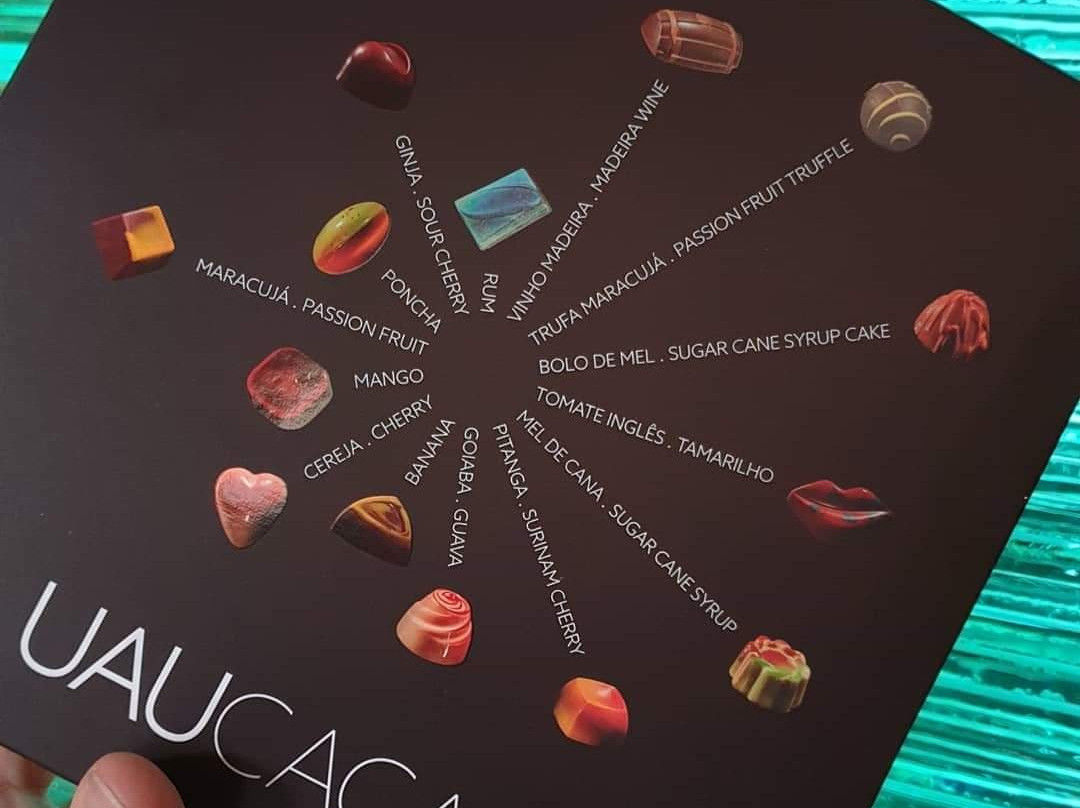 GINJA . SOUR CHERRY
RUM
VINHO MADEIRA . MADEIRA WINE
TRUFA MARACUJÁ . PASSION FRUIT TRUFFLE
BOLO DE MEL . SUGAR CANE SYRUP CAKE
TOMATE INGLÊS . TAMARILHO
MEL DE CANA . SUGAR CANE SYRUP
PITANGA . SURINAM CHERRY
GOIABA . GUAVA
BANANA
CEREJA . CHERRY
MANGO
MARACUJÁ . PASSION FRUIT
PONCHA
UAUCAC